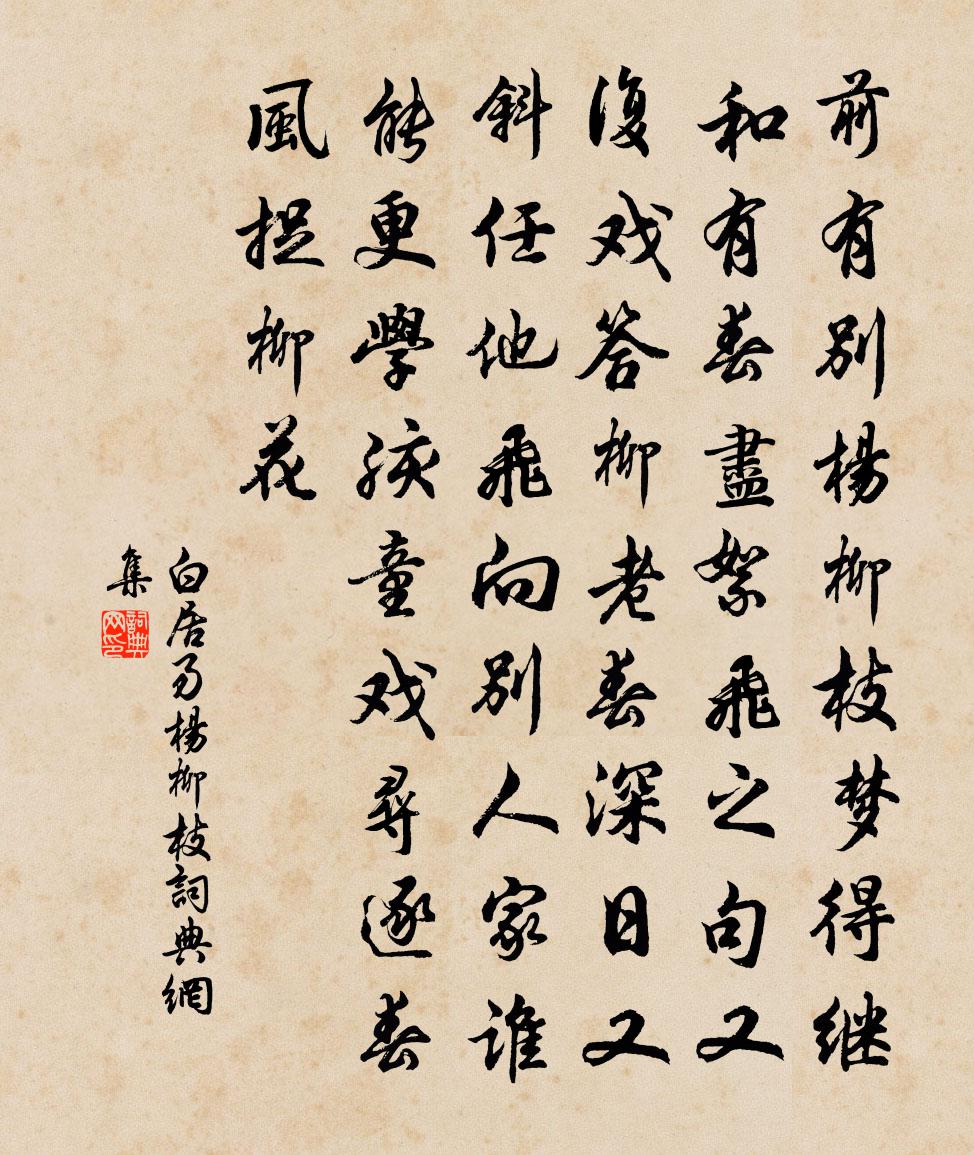 前有別楊柳枝梦得继
和有春盡絮飛之句又
復戏答柳老春深日又
斜任他飛向別人家谁
能更學孩童戏尋逐春
風捉柳花
白居易楊柳枝詞典網
集
詞典网印